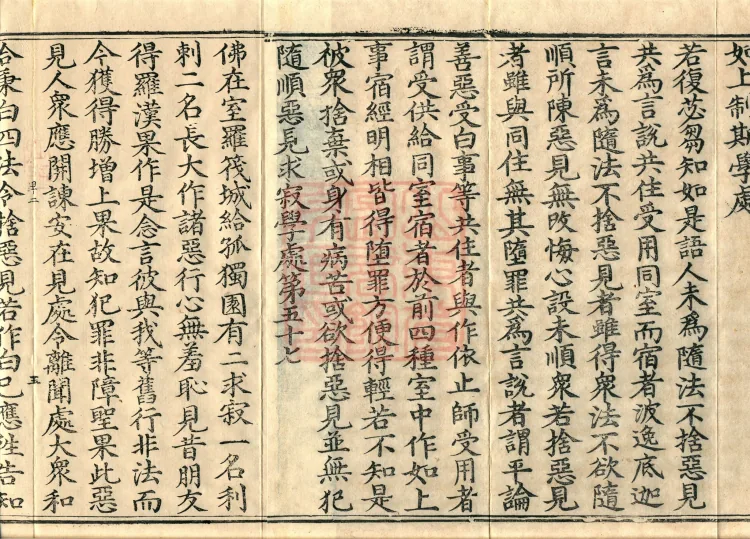 如上制斯學處
若復苾芻知如是語人未爲隨法不捨惡見
共爲言說共住受用同室而宿者波逸底迦
言未爲隨法不捨惡見者雖得衆法不欲隨
順所陳惡見無改悔心設未順衆若捨惡見
者雖與同住無其墮罪共爲言說者謂平論
善惡受白事等共住者與作依止師受用者
謂受供給同室宿者於前四種室中作如上
事宿經明相皆得墮罪方便得輕若不知是
被衆捨棄或身有病苦或欲捨惡見並無犯
隨順惡見求寂學處第五十七
佛在室羅筏城給孤獨園有二求寂一名利
刺二名長大作諸惡行心無羞恥見昔朋友
得羅漢果作是念言彼與我等舊行非法而
今獲得勝增上果故知犯罪非障聖果此惡
見人衆應開諫安在見處令離聞處大衆和
合秉白四法令捨惡見若作白已應往告知